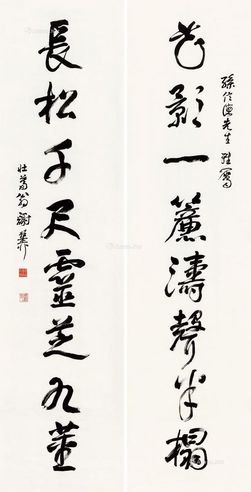 先生雅屬
花影一簾濤聲半榻
長松千尺靈芝九莖
壯暮翁謝稚柳